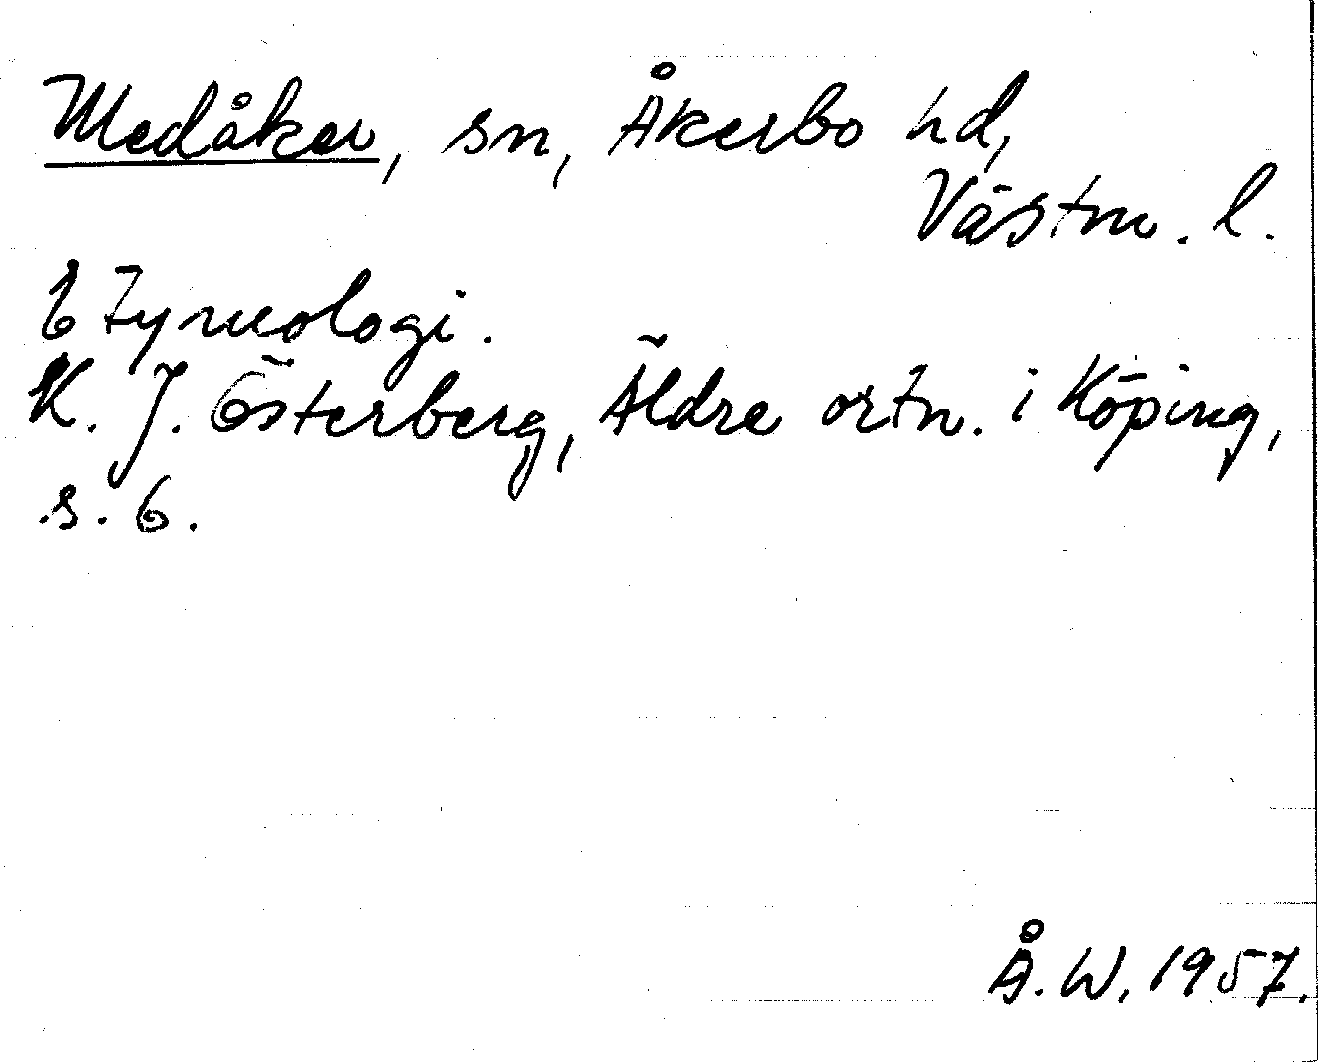 Medåker, sn, Åkerbo hd,
Västm. l.
Etymologi.
K. J. Österberg, Äldre ortn. i Köping,
s. 6.
Å. W. 1957.